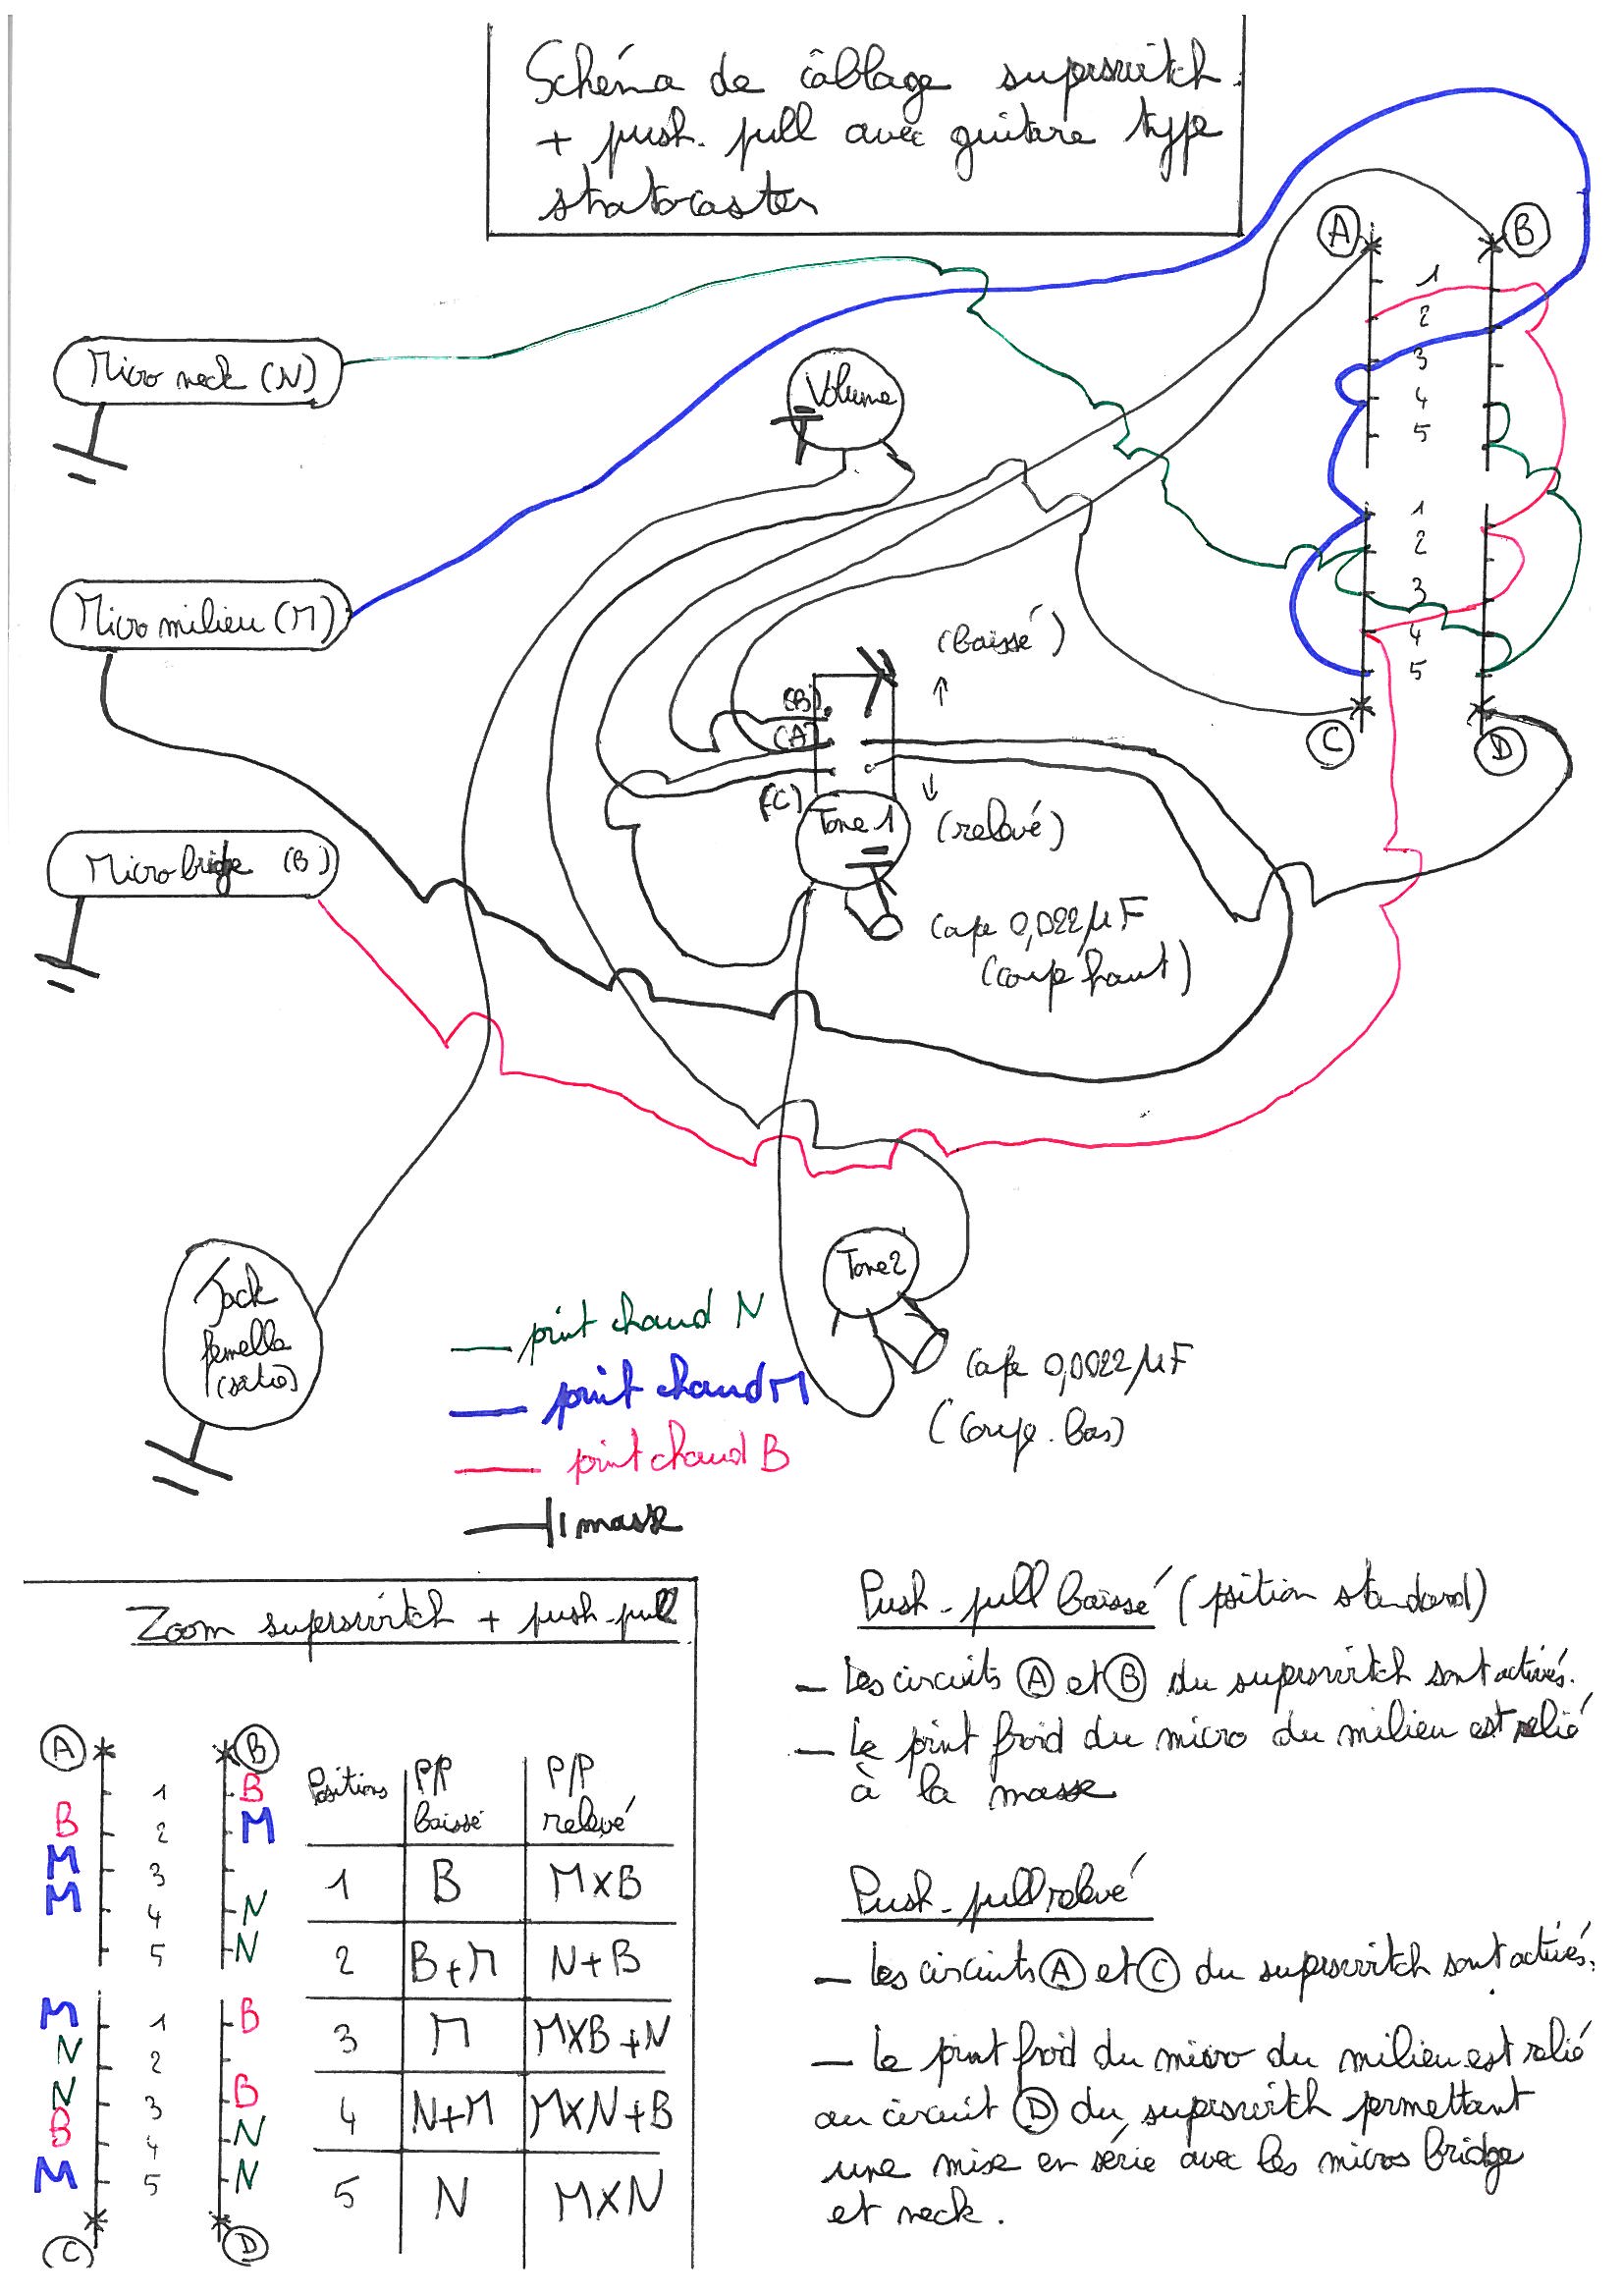 Schéma de câblage superswitch
+ push-pull avec guitare type
stratocaster
A
B
1
2
3
4
5
1
2
3
4
5
C
D
Micro neck (N)
Volume
Micro milieu (M)
(baissé)
↑
(B)
(A)
(C)
↓
(relevé)
Tone 1
Micro bridge (B)
Capa 0,022 µF
(coupe haut)
Tone 2
Capa 0,0022 µF
(coupe-bas)
Jack
femelle
point chaud N
point chaud M
point chaud B
masse
Zoom superswitch + push-pull
A
B
1 B
B 2 M
M 3
M 4 N
5 N
M 1 B
N 2
N 3 B
B 4 N
M 5 N
C
D
Positions P/P baissé P/P relevé
1 B MXB
2 B+M N+B
3 M MXB+N
4 N+M MXN+B
5 N MXN
Push-pull baissé (position standard)
- Les circuits A et B du superswitch sont activés.
- Le point froid du micro du milieu est relié
à la masse
Push-pull relevé
- les circuits A et C du superswitch sont activés.
- Le point froid du micro du milieu est relié
au circuit D du superswitch permettant
une mise en série avec les micros bridge
et neck.